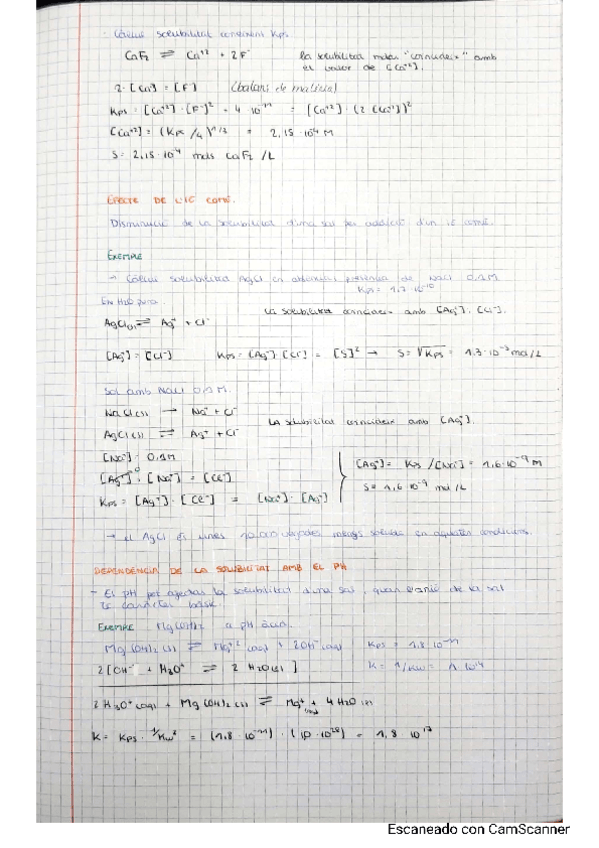 - Càlcul solubilitat coneixent Kps.
CaF2 ⇌ Ca+2 + 2F-
la solubilitat molar "coincideix" amb
el valor de [Ca+2].
2·[Ca] = [F] (balanç de matèria)
Kps = [Ca+2]·[F-]2 = 4·10-11 = [Ca+2]·(2[Ca+2])2
[Ca+2] = (Kps/4)1/3 = 2,15·10-4 M
S = 2,15·10-4 mols CaF2/L
EFECTE DE L'IÓ COMÚ.
Disminució de la solubilitat d'una sal per addició d'un ió comú.
EXEMPLE
→ Càlcul solubilitat AgCl en presència de NaCl 0,1M
Kps = 1,7·10-10
En H2O pura.
AgCl(s) ⇌ Ag+ + Cl-
La solubilitat coincideix amb [Ag+], [Cl-].
[Ag+] = [Cl-] Kps = [Ag+]·[Cl-] = [S]2 → S = √Kps = 1,3·10-5 mol/L
Sol amb NaCl 0,1M.
NaCl(s) → Na+ + Cl-
AgCl(s) ⇌ Ag+ + Cl-
LA solubilitat coincideix amb [Ag+].
[Na+] = 0,1M
[Ag+] + [Na+] = [Cl-]
Kps = [Ag+]·[Cl-] = [Na+]·[Ag+]
[Ag+] = Kps/[Na+] = 1,6·10-9 M
S = 1,6·10-9 mol/L
→ el AgCl és unes 10.000 vegades menys soluble en aquestes condicions.
DEPENDÈNCIA DE LA SOLUBILITAT AMB EL PH
- El pH pot afectar la solubilitat d'una sal, quan l'anió de la sal
té caràcter bàsic.
EXEMPLE Mg(OH)2 a pH àcid.
Mg(OH)2(s) ⇌ Mg+2(aq) + 2OH-(aq) Kps = 1,8·10-11
2[OH- + H3O+ ⇌ 2H2O(l)] K = 1/Kw = 1·1014
2H3O+(aq) + Mg(OH)2(s) ⇌ Mg+(aq) + 4H2O(l)
K = Kps·1/Kw2 = (1,8·10-11)·(10·1028) = 1,8·1017
Escaneado con CamScanner